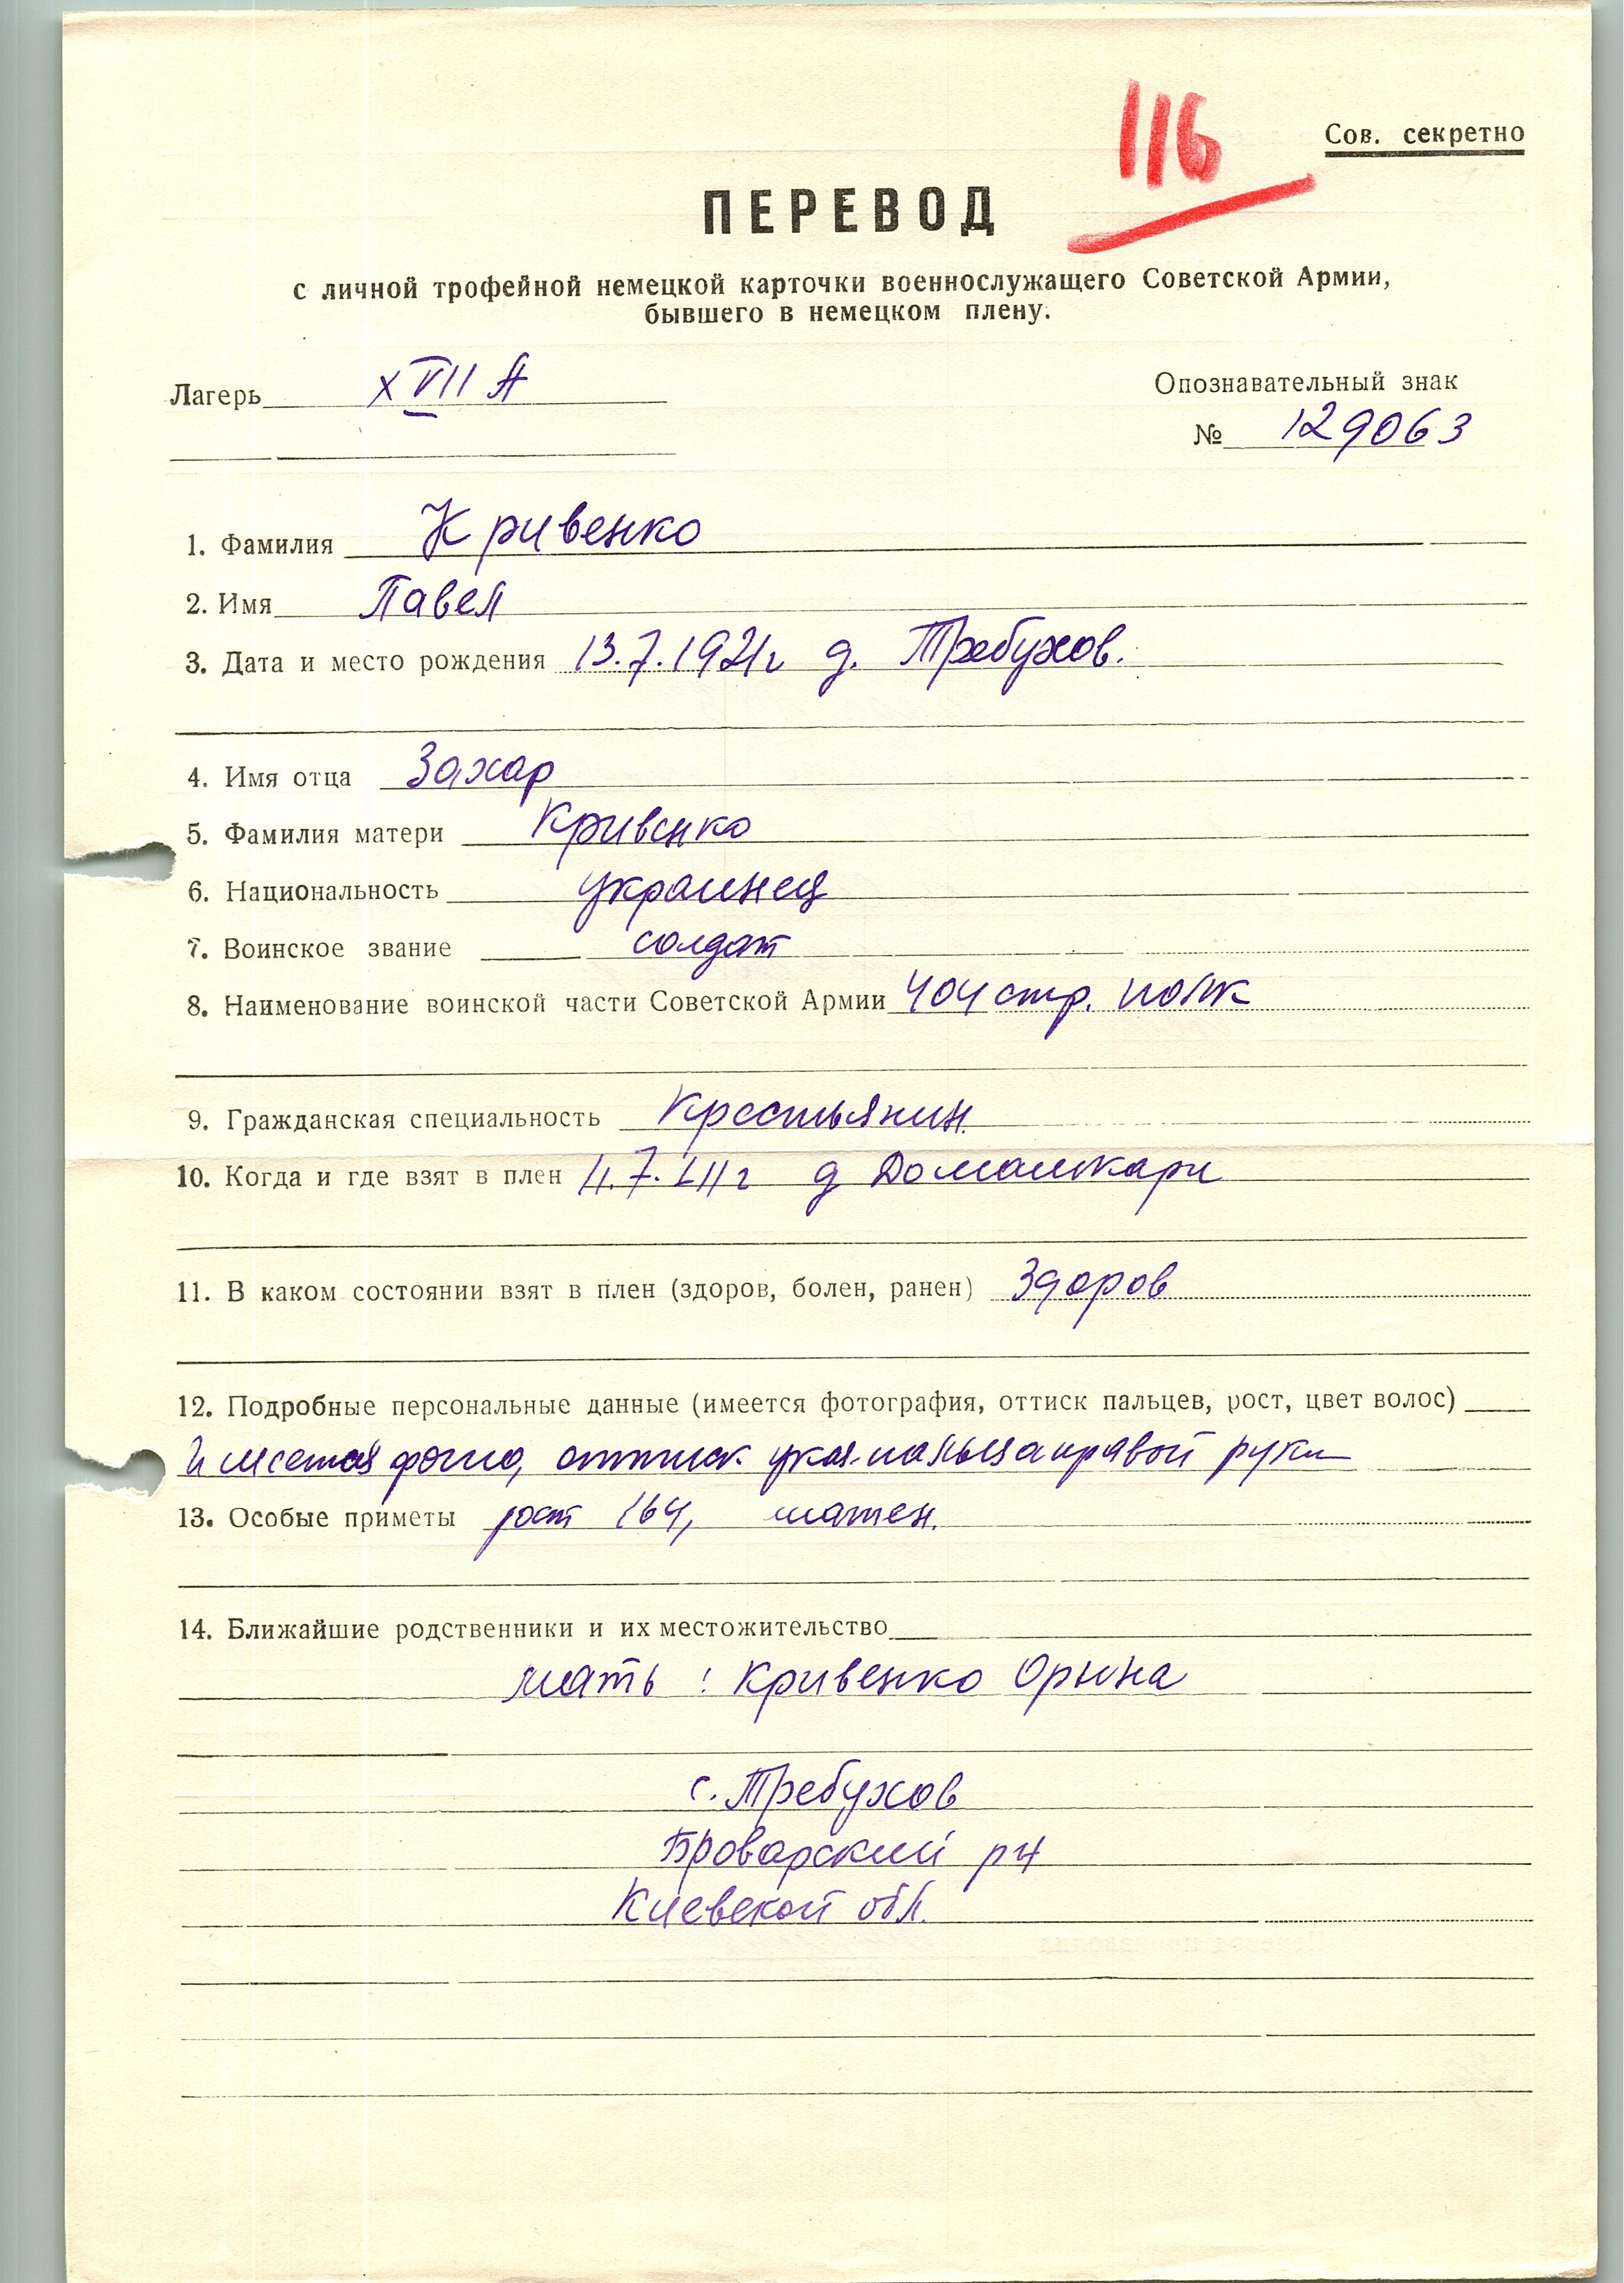 116
Сов. секретно
ПЕРЕВОД
с личной трофейной немецкой карточки военнослужащего Советской Армии,
бывшего в немецком плену.
Лагерь XVII А
Опознавательный знак
№ 129063
1. Фамилия Кривенко
2. Имя Павел
3. Дата и место рождения 13.7.1921г д. Требухов.
4. Имя отца Захар
5. Фамилия матери Кривенко
6. Национальность украинец
7. Воинское звание солдат
8. Наименование воинской части Советской Армии 404 стр. полк
9. Гражданская специальность Крестьянин
10. Когда и где взят в плен д
11. В каком состоянии взят в плен (здоров, болен, ранен) Здоров
12. Подробные персональные данные (имеется фотография, оттиск пальцев, рост, цвет волос)
Имеется фото, оттиск указ. пальца правой руки
13. Особые приметы рост 164, шатен.
14. Ближайшие родственники и их местожительство
мать: Кривенко Орына
с. Требухов
Броварский рн
Киевской обл.